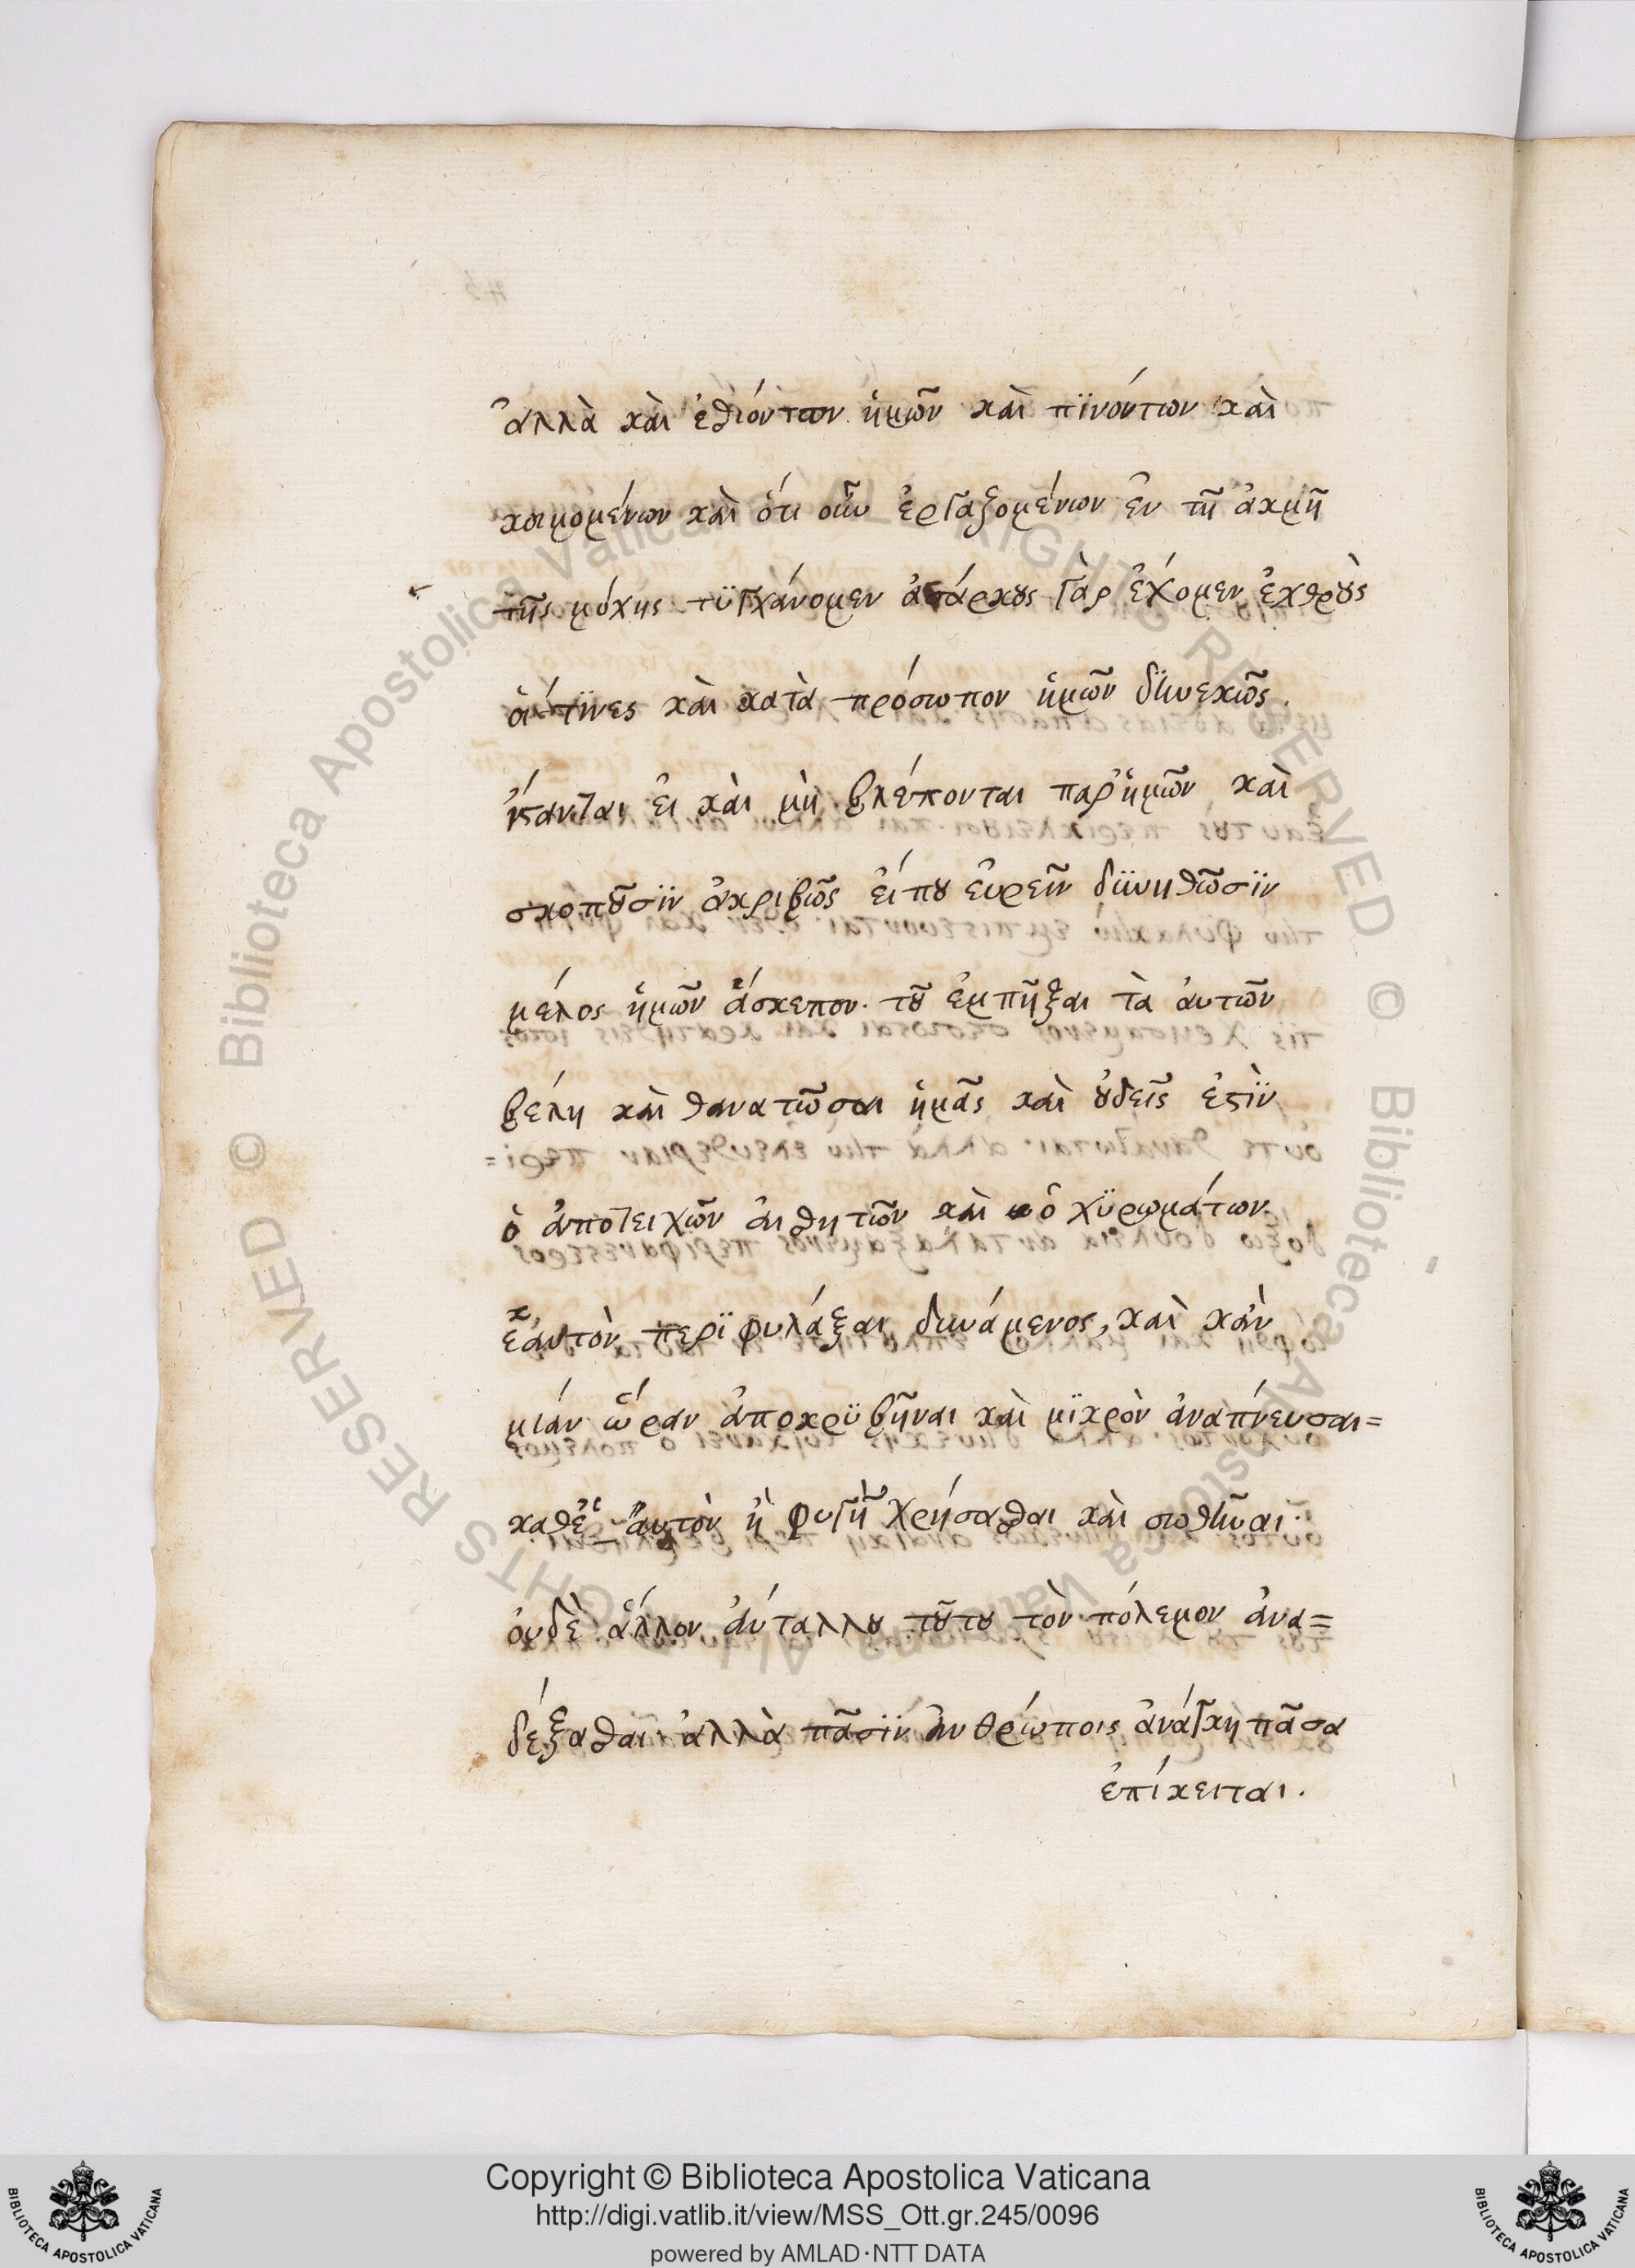 ἀλλὰ καὶ ἐσθιόντων ἡμῶν καὶ πϊνόντων καὶ
κοιμομένων καὶ ὅτι οὖν ἐργαζομένων ἐν τῇ ἀκμῇ
τῆς μάχης τϋγχάνομεν ἀσάρκους γὰρ ἔχομεν ἐχθροὺς
οἵτϊνες καὶ κατὰ πρόσωπον ἡμῶν δϊηνεκῶς
ἵστανται εἰ καὶ μὴ βλέπονται παρ' ἡμῶν καὶ
σκοποῦσϊν ἀκριβῶς εἴπου εὑρεῖν δϋνηθῶσϊν
μέλος ἡμῶν ἄσκεπον. τοῦ ἐμπῆξαι τὰ αὐτῶν
βέλη καὶ θανατῶσαι ἡμᾶς καὶ οὐδεῖς ἐστϊν
ὁ ἀποτειχῶν αἰσθητῶν καὶ ὀχϋρωμάτων.
ἑαυτὸν περϊφυλάξαι δυνάμενος, καὶ κἂν
μιάν ὥραν ἀποκρϋβῆναι καὶ μϊκρὸν ἀναπνεῦσαι=
καθ' ἑαυτὸν ἢ φυγῇ χρήσασθαι καὶ σωθῆναι·
οὐδὲ ἄλλον ἀντ' ἄλλου τοῦτον τὸν πόλεμον ἀνα=
δέξασθαι· ἀλλὰ πᾶσϊν ἀνθρώποις ἀνάγκη πᾶσα
ἐπίκειται.
Copyright © Biblioteca Apostolica Vaticana
http://digi.vatlib.it/view/MSS_Ott.gr.245/0096
powered by AMLAD·NTT DATA
BIBLIOTECA APOSTOLICA VATICANA
BIBLIOTECA APOSTOLICA VATICANA